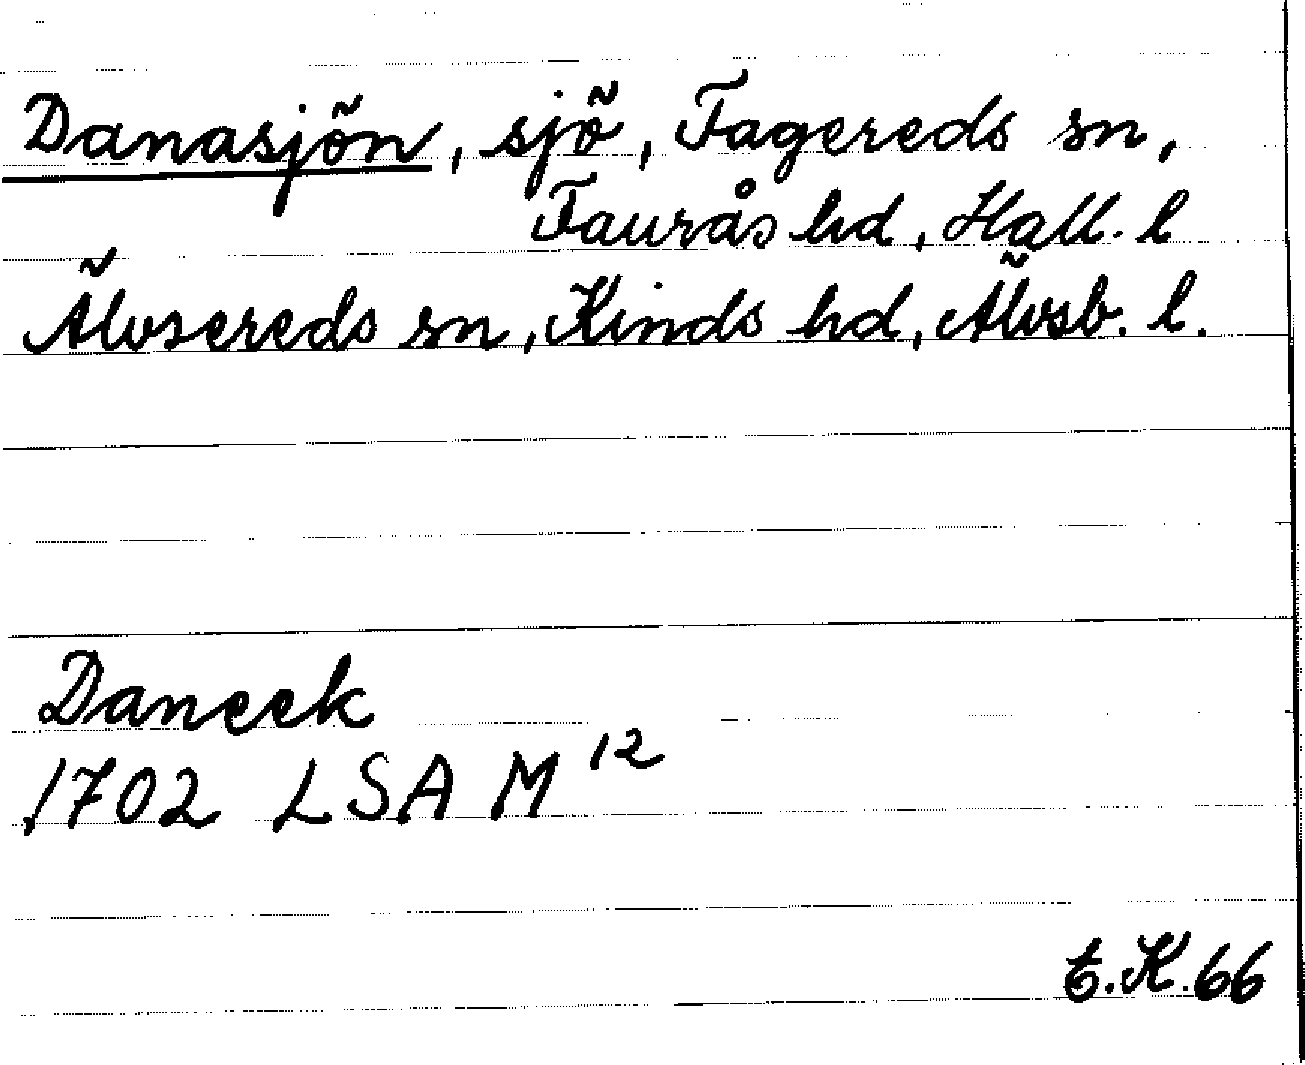 Danasjön, sjö, Fagereds sn,
Faurås hd, Hall. l
Älvsereds sn, Kinds hd, Älvsb. l.
Daneek
1702 LSA M 12
E.K.66